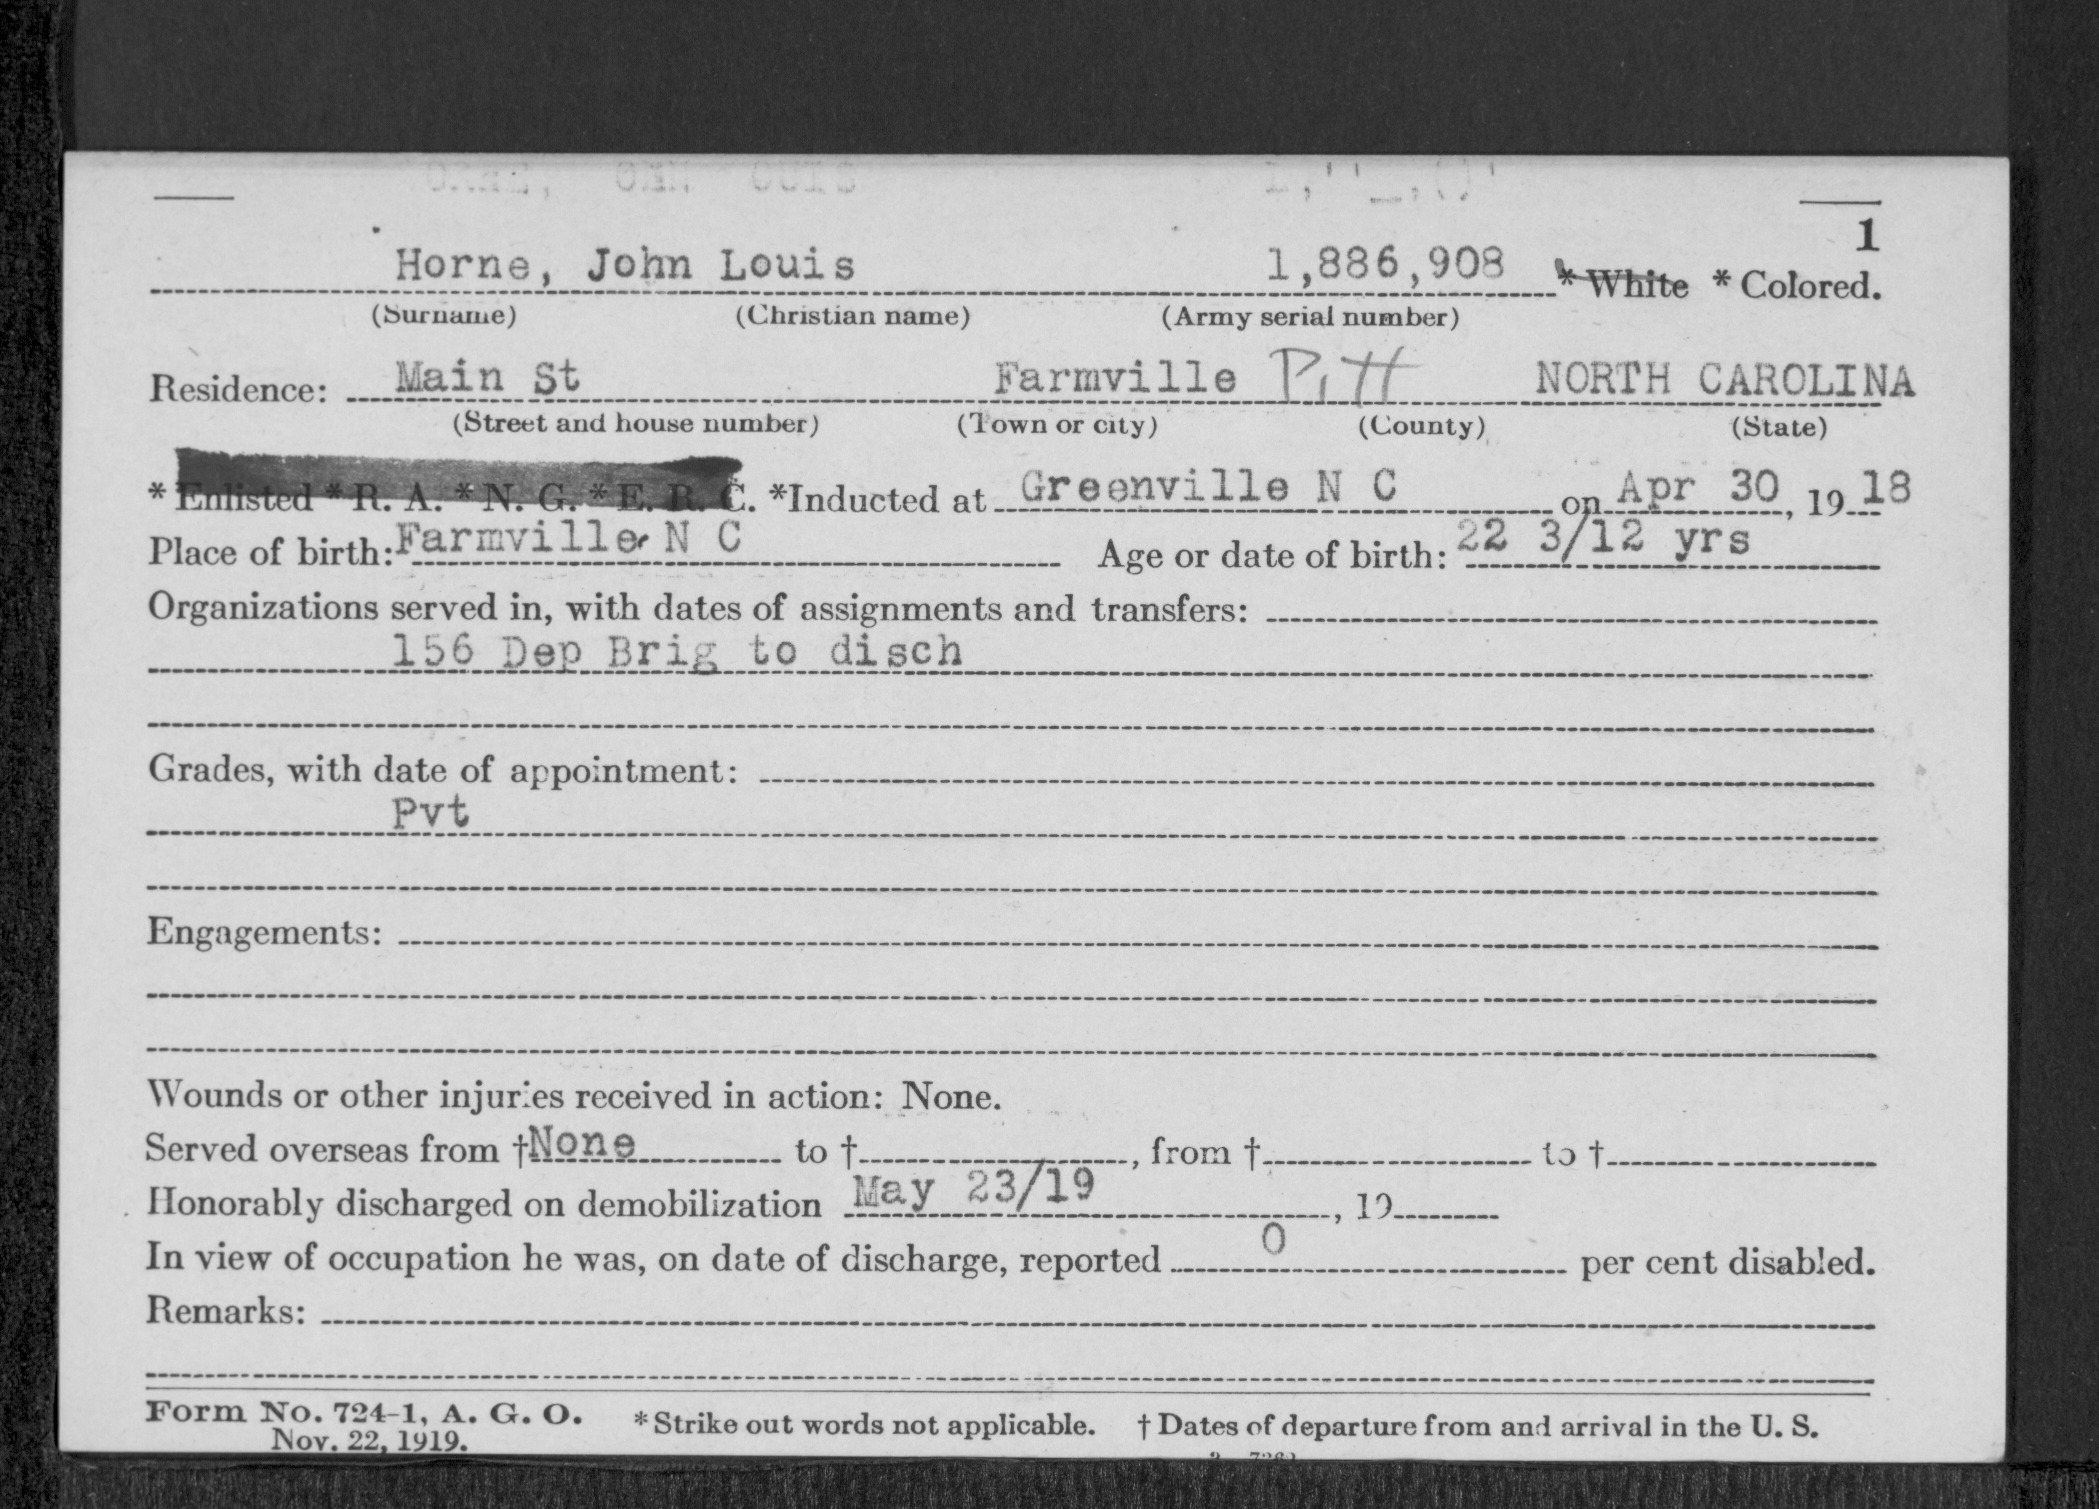 1
Horne, John Louis 1,886,908 * White * Colored.
(Surname) (Christian name) (Army serial number)
Residence: Main St Farmville Pitt NORTH CAROLINA
(Street and house number) (Town or city) (County) (State)
* Enlisted * R. A. * N. G. * E. R. C. *Inducted at Greenville N C on Apr 30, 19 18
Place of birth: Farmville N C Age or date of birth: 22 3/12 yrs
Organizations served in, with dates of assignments and transfers:
156 Dep Brig to disch
Grades, with date of appointment:
Pvt
Engagements:
Wounds or other injuries received in action: None.
Served overseas from †None to †, from † to †
Honorably discharged on demobilization May 23/19, 19
In view of occupation he was, on date of discharge, reported 0 per cent disabled.
Remarks:
Form No. 724-1, A. G. O. * Strike out words not applicable. † Dates of departure from and arrival in the U. S.
Nov. 22, 1919.